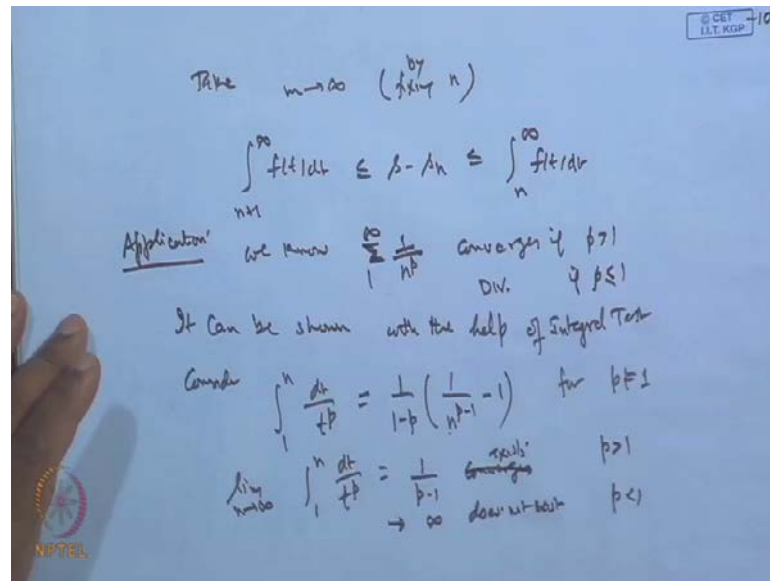 © CET
I.I.T. KGP
-10
Take m→∞ (by fixing n)
∫_{n+1}^{∞} f(t)dt ≤ s - s_n ≤ ∫_{n}^{∞} f(t)dt
Application: we know ∑_{1}^{∞} 1/n^p converges if p>1
Div. if p≤1
It can be shown with the help of Integral Test
Consider ∫_{1}^{n} dt/t^p = 1/(1-p) (1/n^{p-1} - 1) for p≠1
lim_{n→∞} ∫_{1}^{n} dt/t^p = 1/(p-1) exists p>1
→ ∞ does not exist p<1
NPTEL